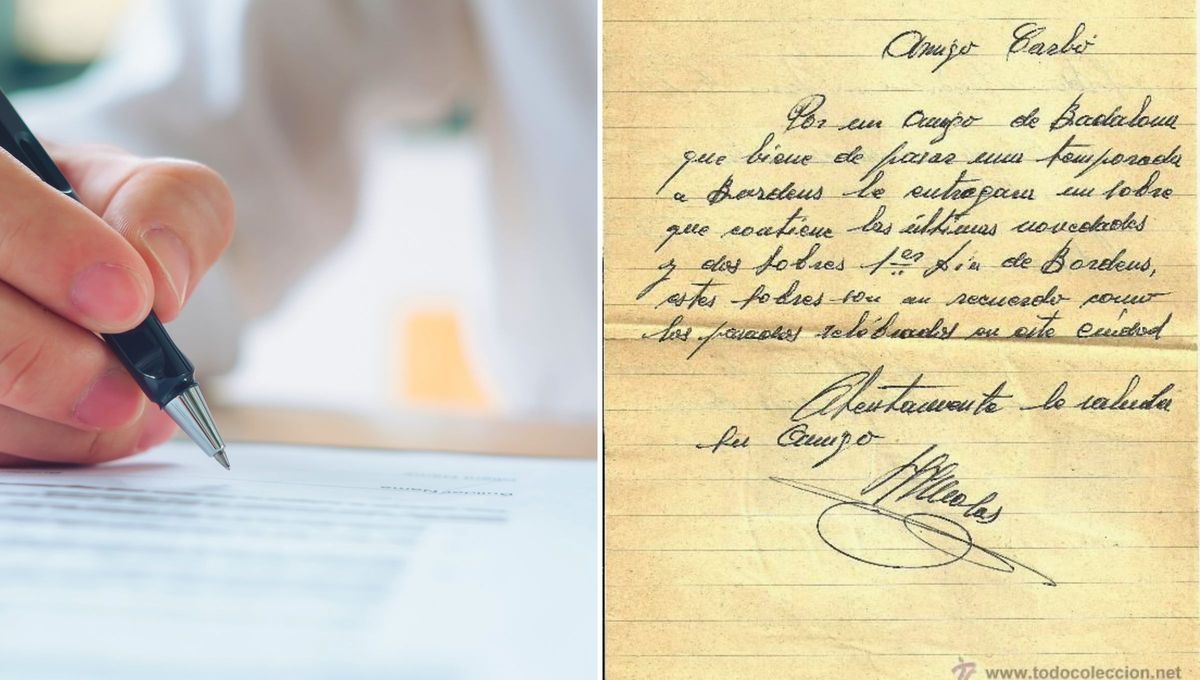 Builder Name
Amigo Carbó
Por un amigo de Badalona
que biene de pasar una temporada
a Bordeus le entregara un sobre
que contiene las últimas novedades
y dos sobres 1er dia de Bordeus,
estes sobres son un recuerdo como
los pasados selébrados en este ciudad
Atentamente le saluda
su Amigo
www.todocoleccion.net